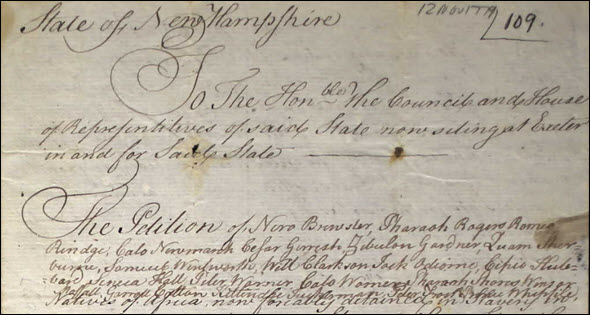 State of New Hampshire
12 Nov 1779
109.
To The Honbles the Council and House
of Representitives of said State now seting at Exeter
in and for said State
The Petition of Nero Brewster, Pharaoh Rogers, Romeo
Rindge, Cato Newmarch, Cesar Gerrish, Zebulon Gardner, Quam Sher-
burne, Samuel Wentworth, Will Clarkson, Jack Odiorne, Cipio Hub-
bard, Seneca Hall, Peter Warner, Cato Warner, Pharaoh Shores, Winsor
Moffatt, Garrott Cotton, Kittindge Tuckerman, Peter Frost, Prince Whipple
Natives of Africa, now forcibly detained in Slavery